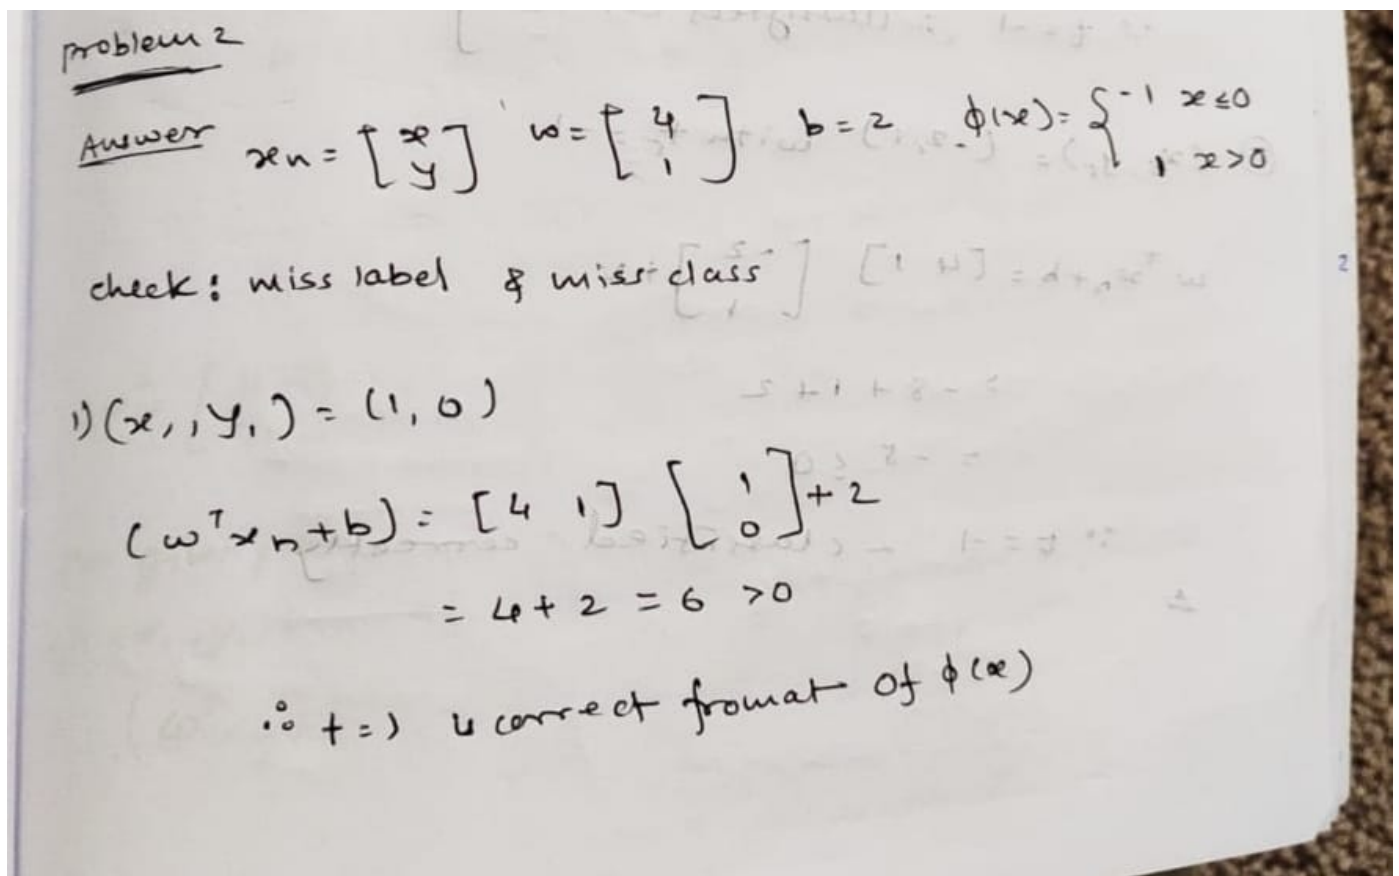 problem 2
Answer xn = [x y] w = [4 1] b = 2 ϕ(x) = { -1 x≤0
1 x>0
check: miss label & miss class
1) (x1, y1) = (1, 0)
(wTxn+b) = [4 1] [1 0] + 2
= 4 + 2 = 6 >0
∴ t = 1 is correct fromat of ϕ(x)
2